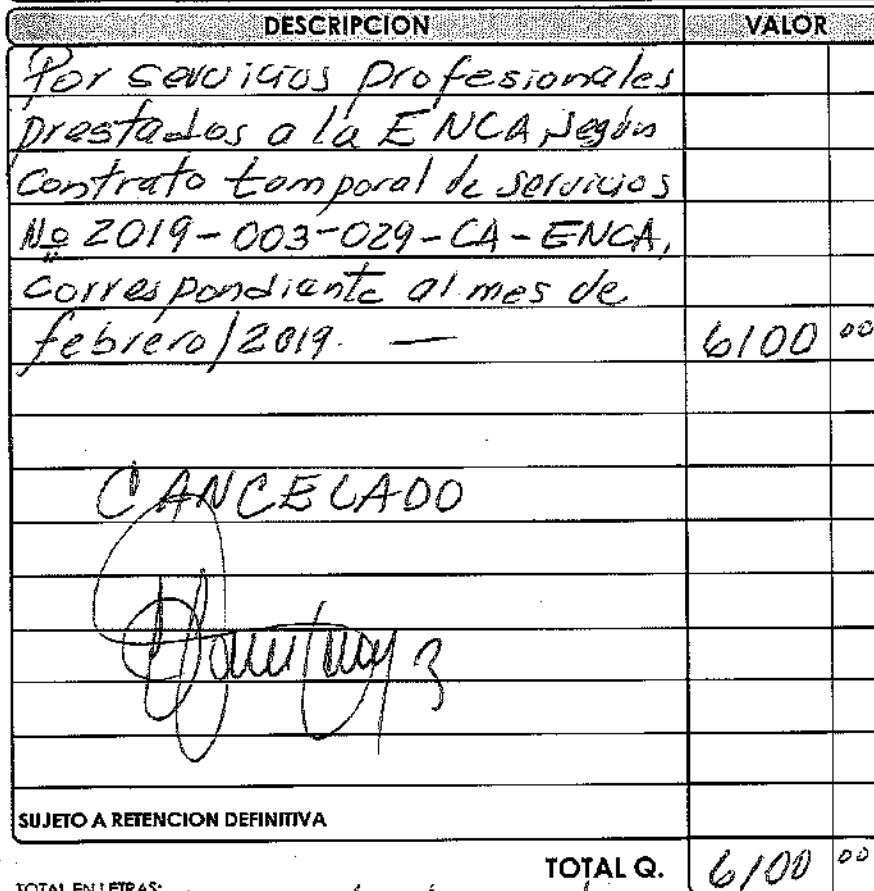 DESCRIPCION VALOR
Por servicios profesionales
prestados a la ENCA, según
Contrato temporal de servicios
Nº 2019-003-029-CA-ENCA,
correspondiente al mes de
febrero/2019. — 6100 00
CANCELADO
SUJETO A RETENCION DEFINITIVA
TOTAL Q. 6100 00
TOTAL EN LETRAS: